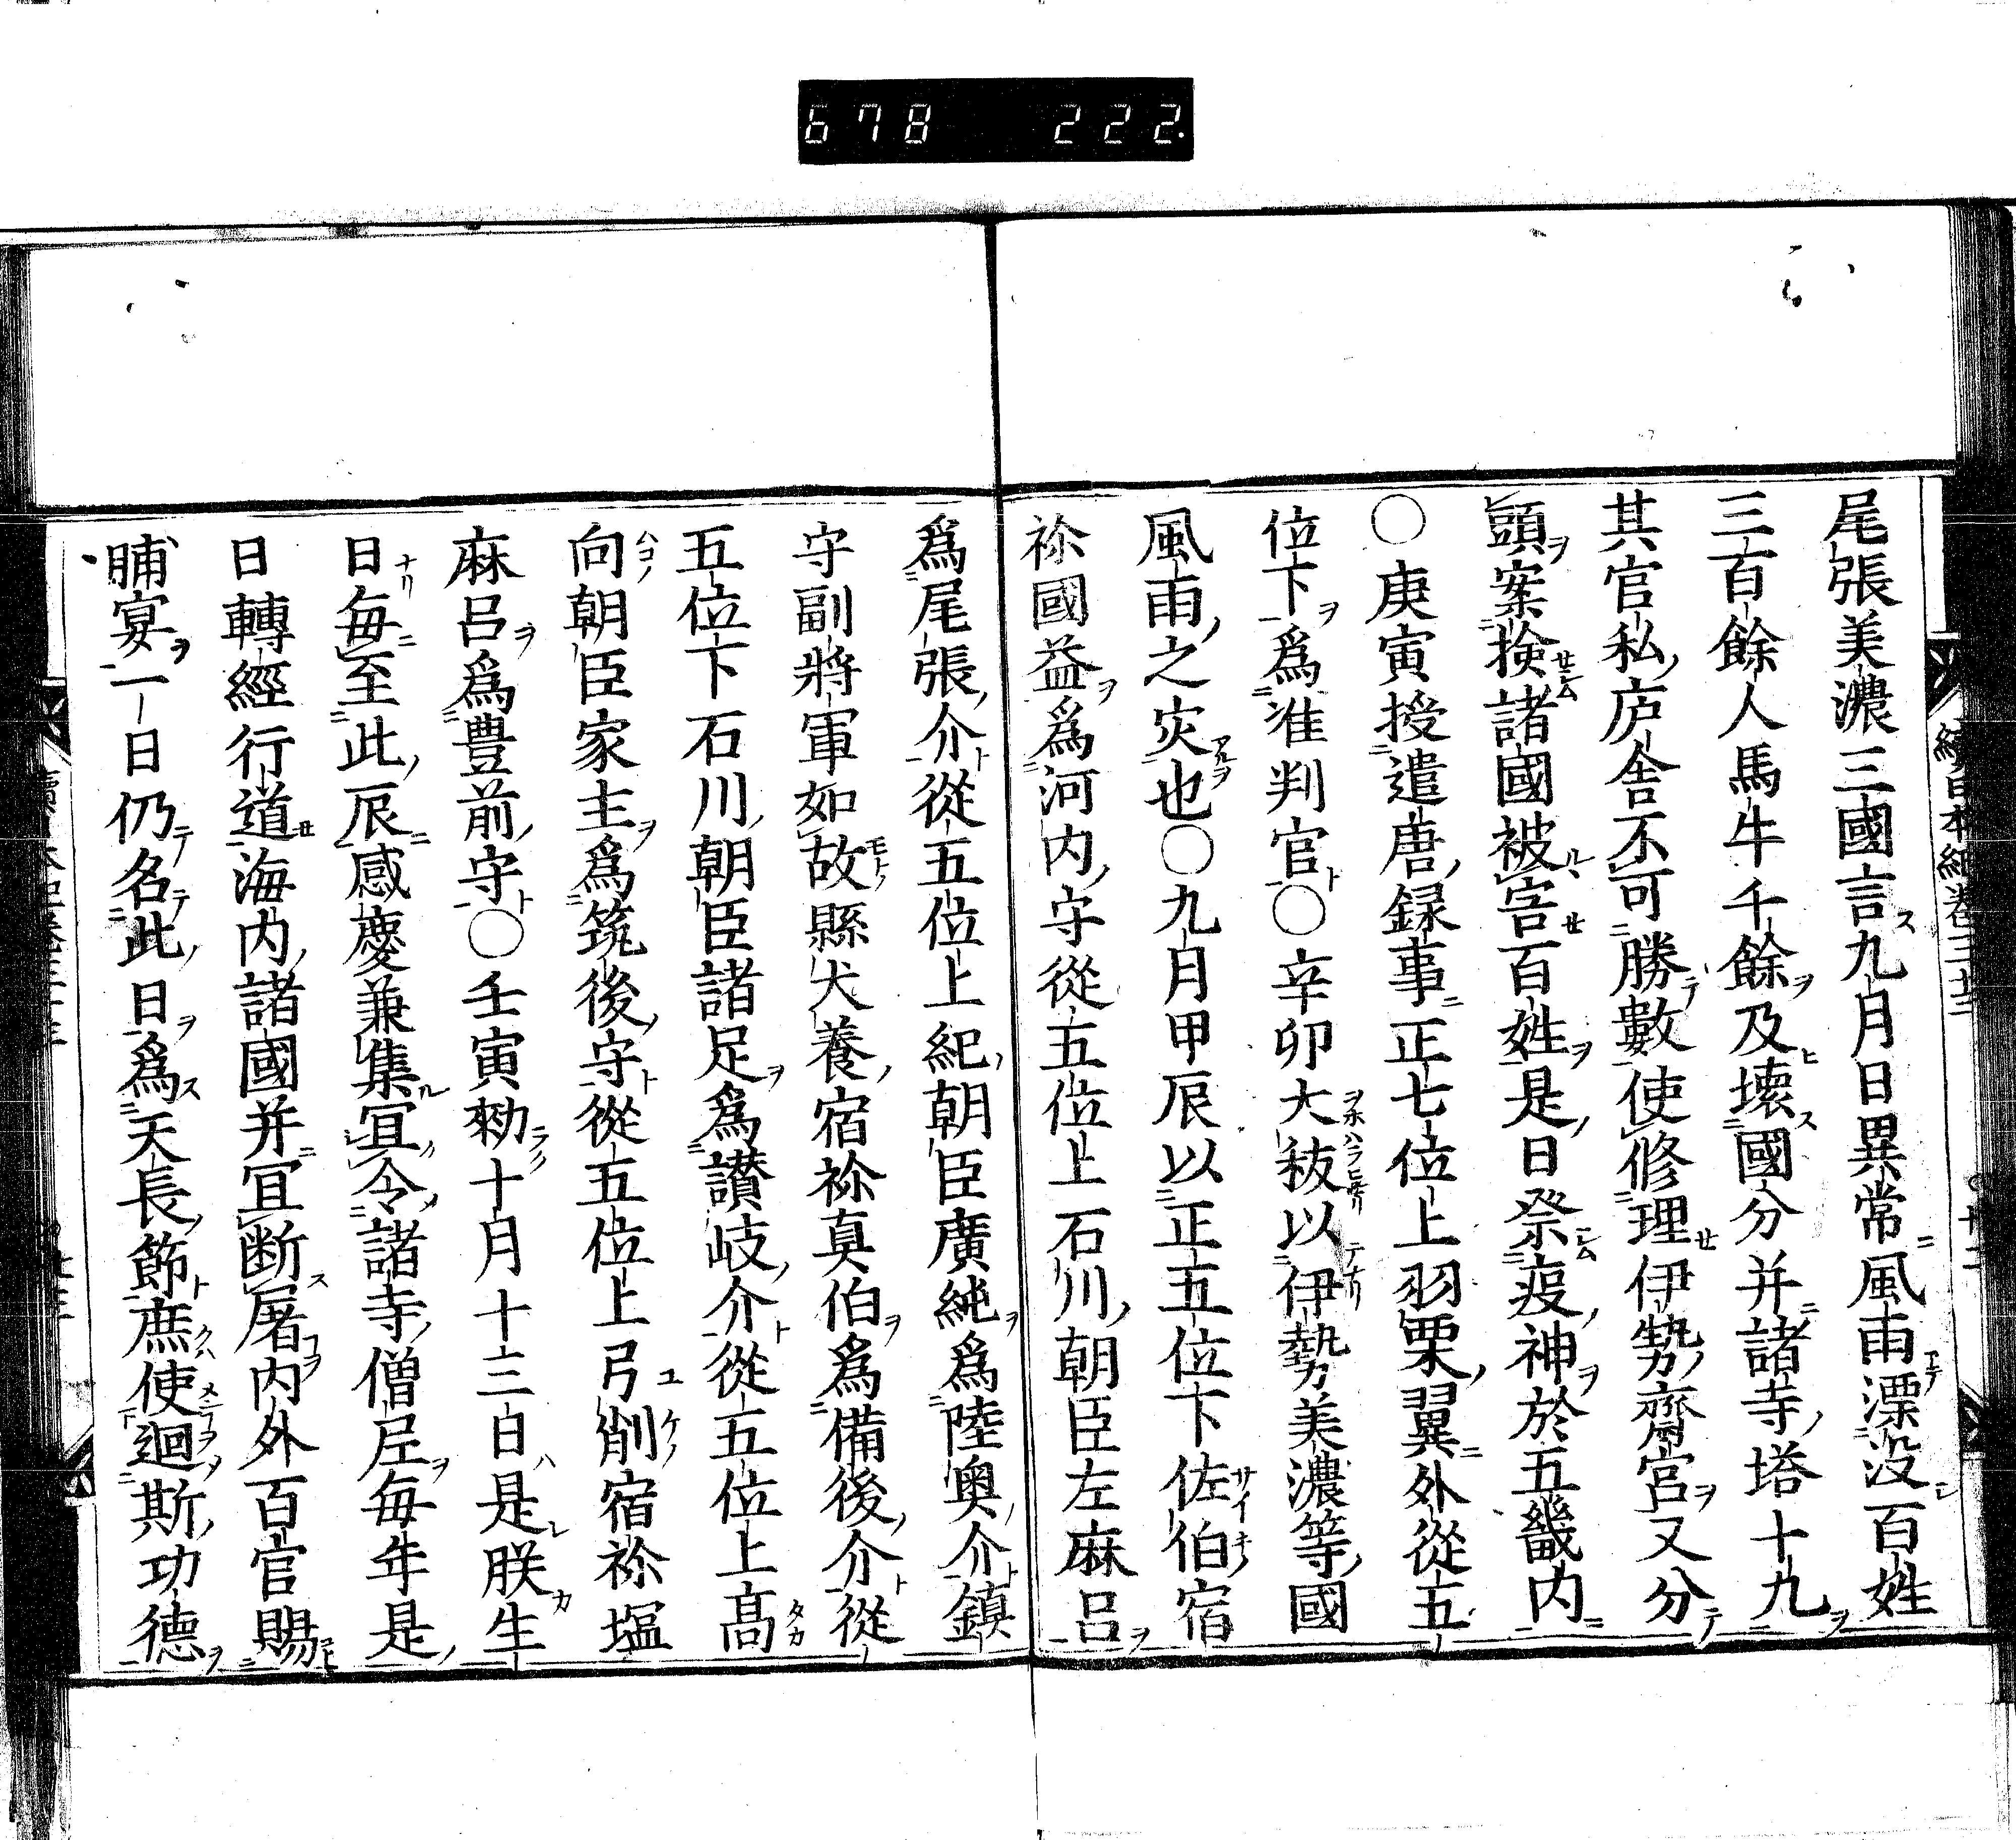 678 222.
尾張美濃三國言九月日異常風雨漂没百姓
三百餘人馬牛千餘及壊國分并諸寺塔十九
其官私庐舎不可勝數使修理伊勢齋宮又分
頭案撿諸國被害百姓是日祭疫神於五畿内
○庚寅授遣唐録事正七位上羽栗翼外從五
位下爲准判官○辛卯大秡以伊勢美濃等國
風雨之灾也○九月甲辰以正五位下佐伯宿
祢國益爲河内守從五位上石川朝臣左麻呂
爲尾張介從五位上紀朝臣廣純爲陸奧介鎮
守副將軍如故縣犬養宿祢真伯爲備後介從
五位下石川朝臣諸足爲讃岐介從五位上髙
向朝臣家主爲筑後守從五位上弓削宿祢塩
麻呂爲豊前守○壬寅勑十月十三日是朕生
日毎至此辰感慶兼集冝令諸寺僧尼毎年是
日轉經行道海内諸國并冝断屠内外百官賜
脯宴一日仍名此日爲天長節庶使迴斯功德